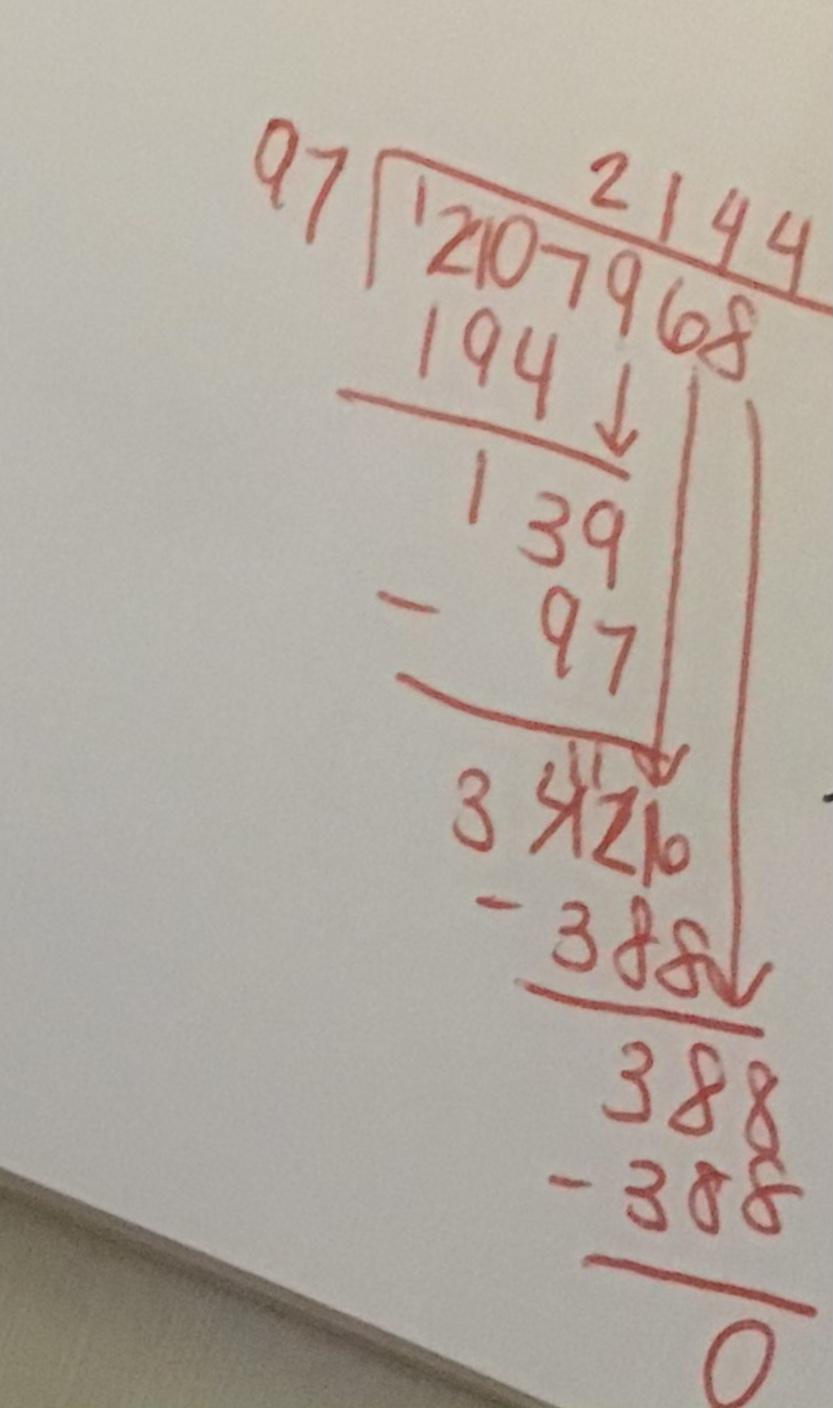 2144
97 1
2107968
194
139
- 97
3 11
4216
- 388
388
- 388
0